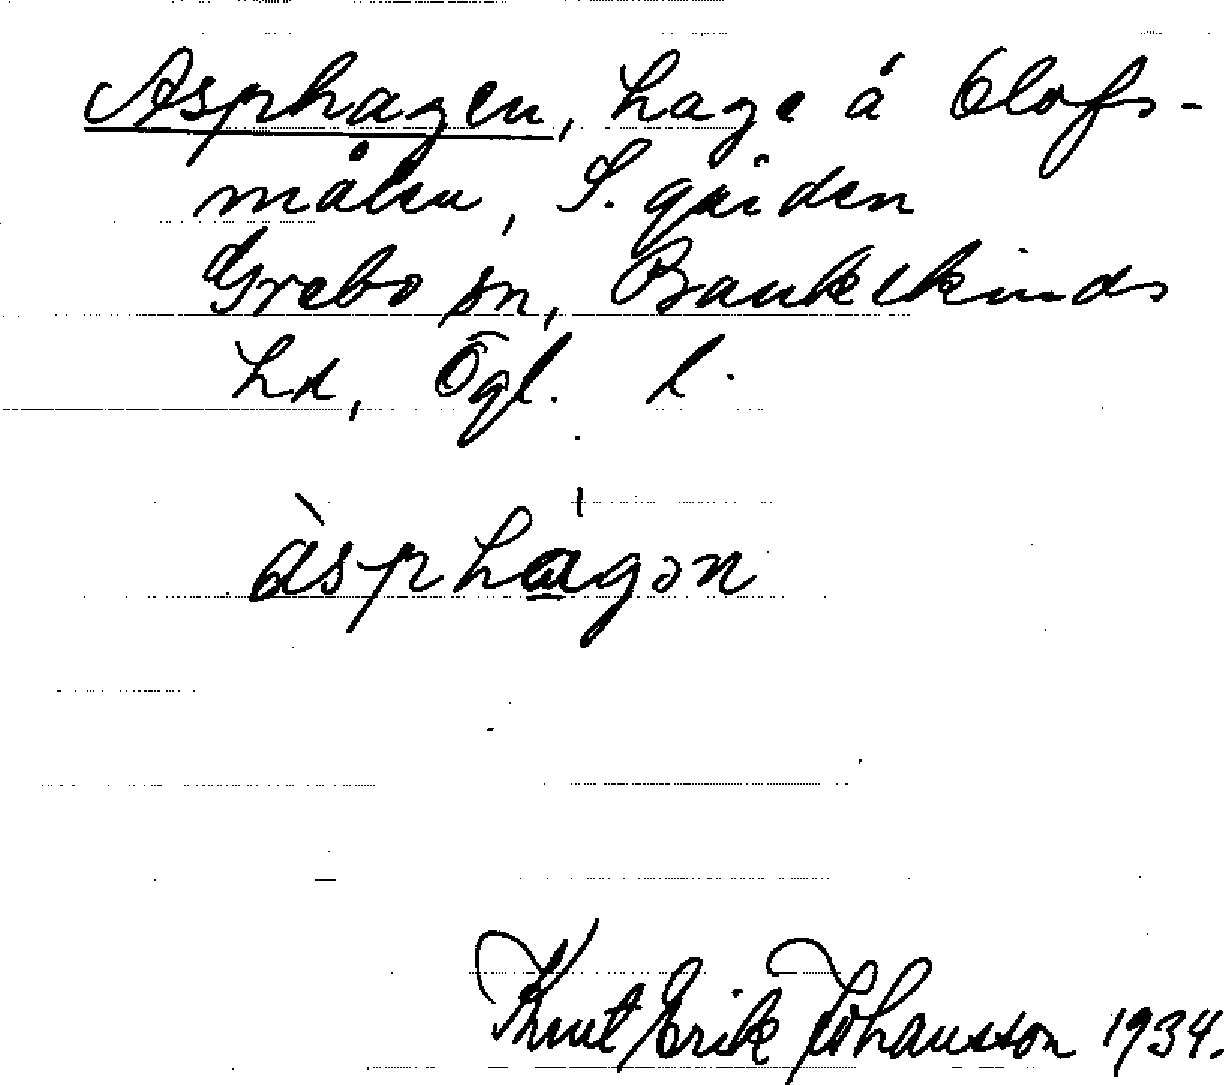 Asphagen, hage å Olofs-
målen, S. gården
Grebo sn, Bankekinds
hd, Ögl. l.
àsphágən
Knut Erik Johansson 1934.